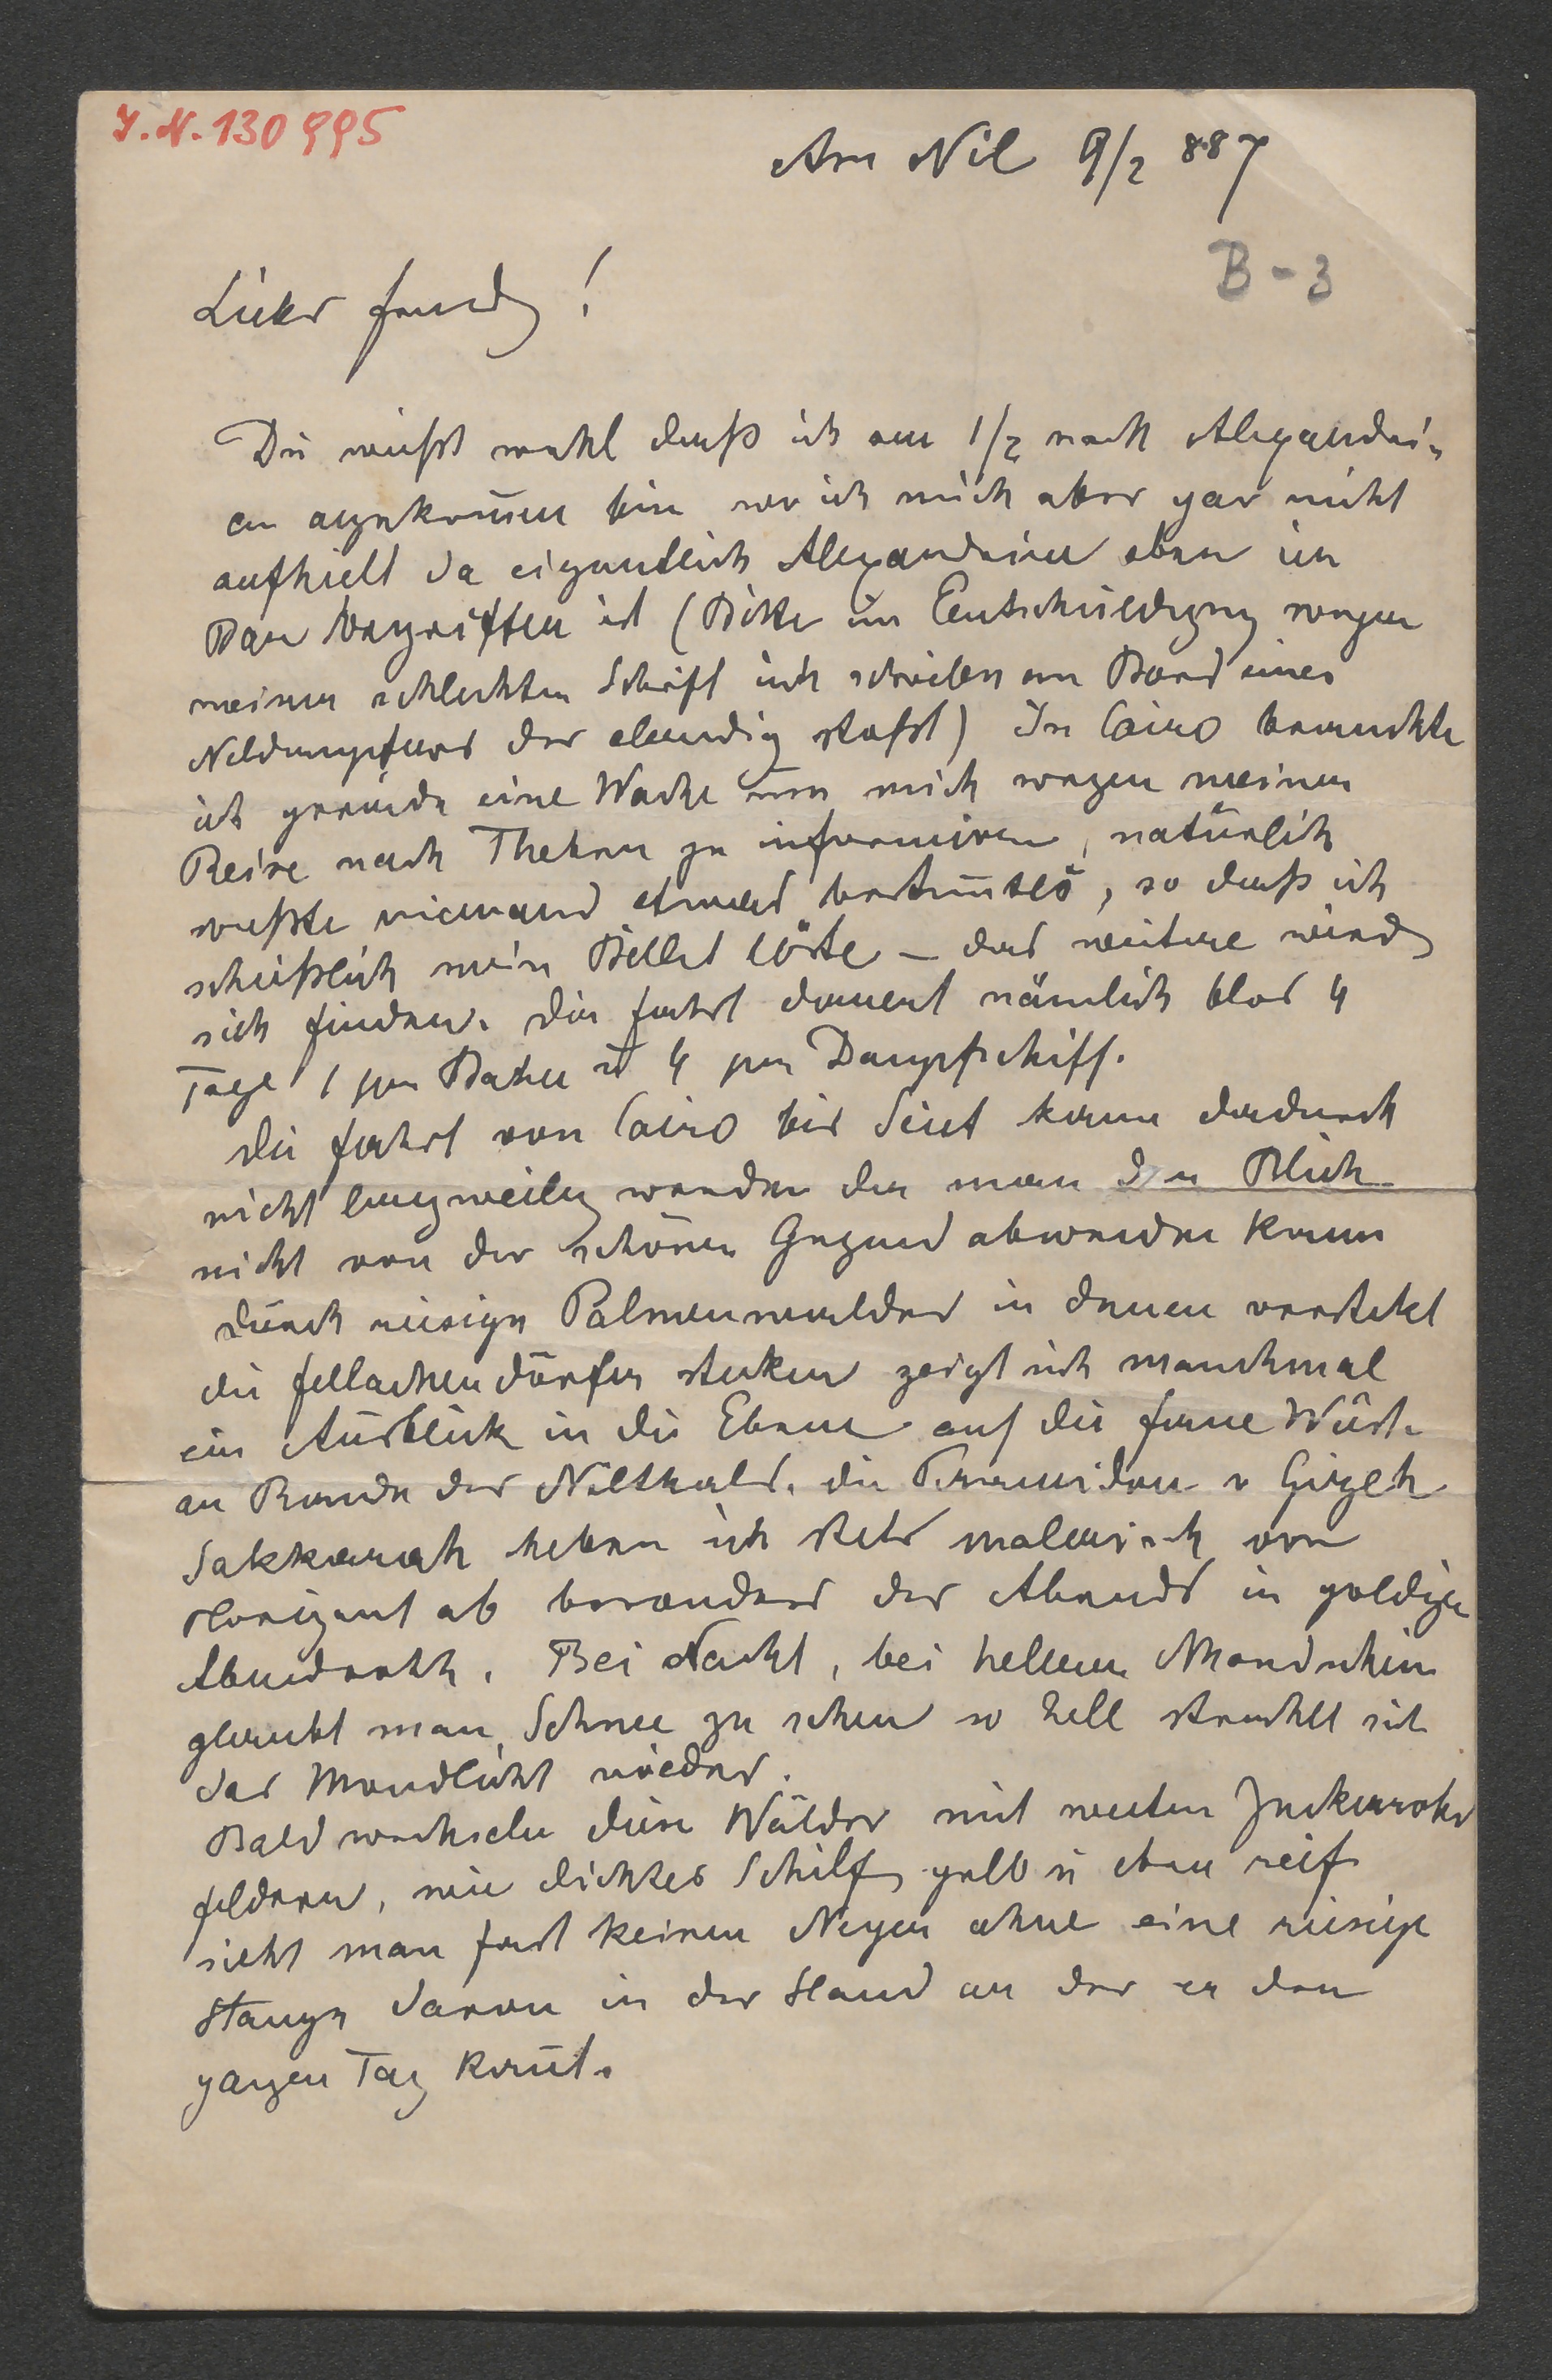 I. N. 130995
Am Nil 9/2 887
B-3
Lieber Freund!
Du weißt wohl daß ich am 1/2 nach Alexandri-
en angekom̄en bin wo ich mich aber gar nicht
aufhielt da eigentlich Alexandrien eben im
Bau begriffen ist (Bitte um Entschuldigung wegen
meiner schlechten Schrift ich schreibe am Bord eines
Nildampfers der elendig stoßt) In Cairo brauchte
ich gerade eine Woche um mich wegen meiner
Reise nach Theben zu informiren, natürlich
wußte niemand etwas bestim̄tes, so daß ich
schließlich mein Billet löste – das weitere wird
sich finden. Die Fahrt dauert nämlich blos 4
Tage 1 per Bahn u 4 per Dampfschiff.
Die Fahrt von Cairo bis Siut kann dadurch
nicht langweilig werden da man den Blick
nicht von der schönen Gegend abwenden kann
durch riesige Palmenwälder in denen versteckt
die Fellachendörfer stecken zeigt sich manchmal
ein Ausblick in die Ebene auf die ferne Wüste
am Rande des Nilthals. Die Piramiden v Gizeh
Sakkarah heben sich stets malerisch vom
Horizont ab besonders des Abends in goldigen
Abendroth. Bei Nacht, bei hellem Mondschein
glaubt man Schnee zu sehen so hell strahlt sich
das Mondlicht wieder.
Bald wechseln diese Wälder mit weiten Zuckerrohr
feldern, wie dichtes Schilf, gelb u eben reif
sieht man fast keinen Neger ohne eine riesige
Stange davon in der Hand an der er den
ganzen Tag kaut.